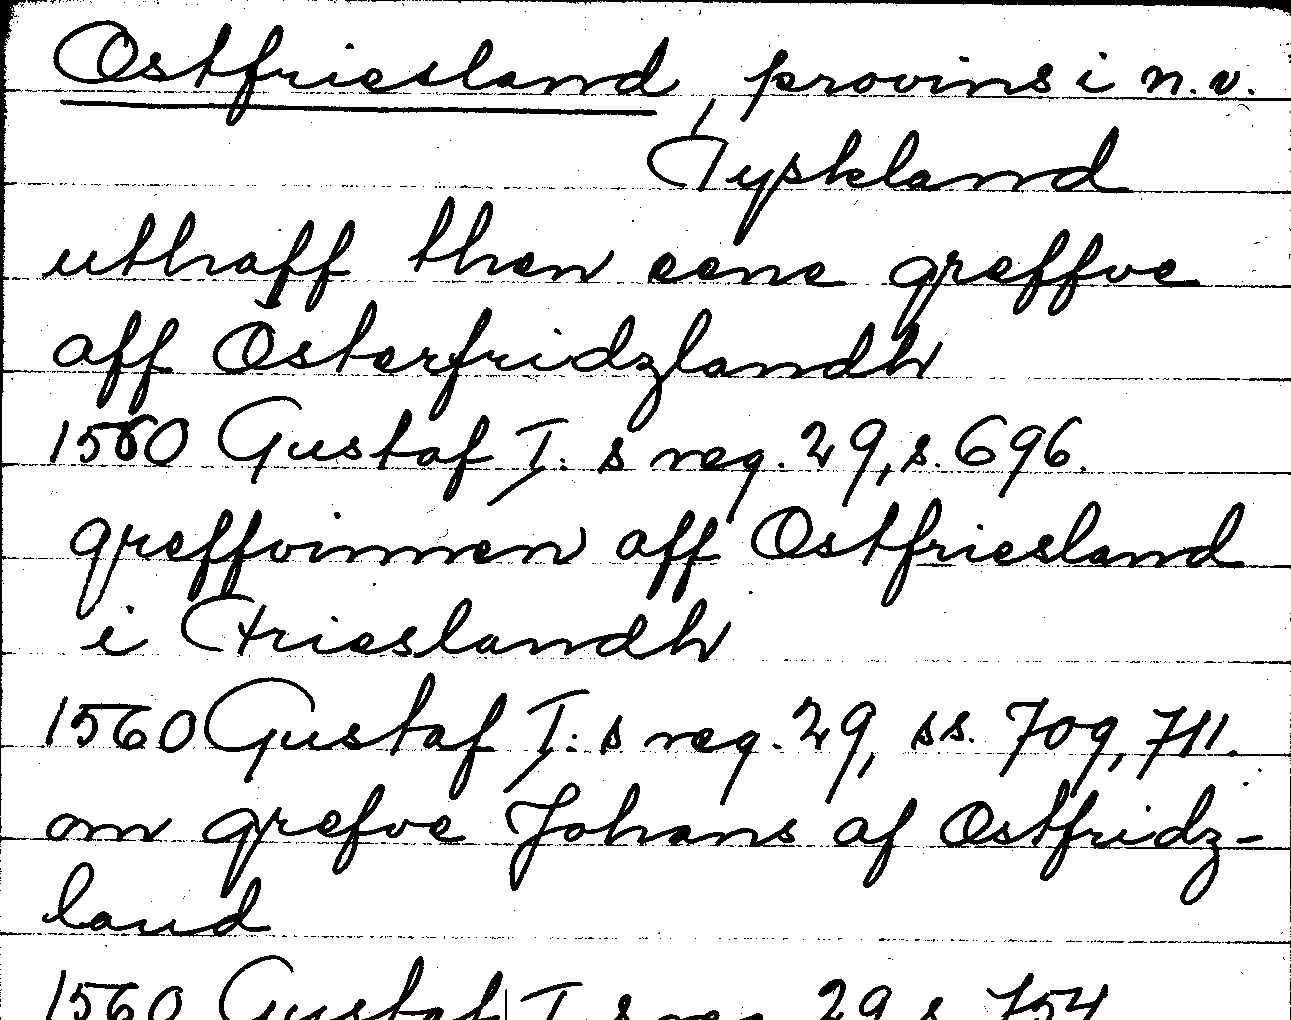 Ostfriesland, provins i n.v.
Tyskland
uthaff then eene greffve
aff Österfridzlandh
1560 Gustaf I:s reg. 29, s. 696.
greffvinnen aff Ostfriesland
i Frieslandh
1560 Gustaf I:s reg. 29, ss. 709, 711.
om grefve Johans af Ostfridz-
land
1560 Gustaf I:s reg. 29 s. 754